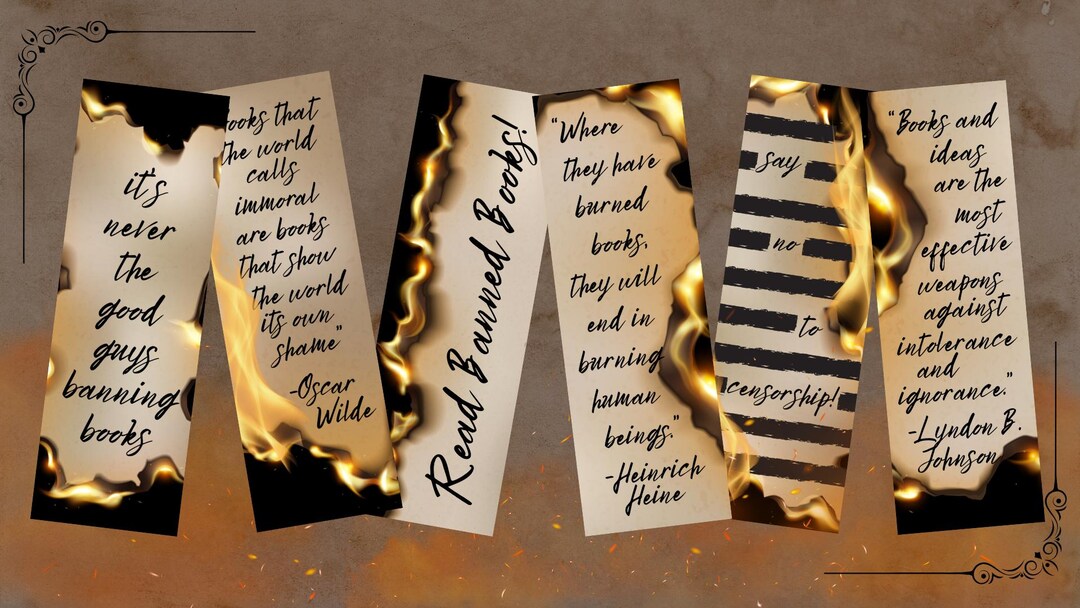 it's
never
the
good
guys
banning
books
ooks that
the world
calls
immoral
are books
that show
the world
its own
shame"
-Oscar
Wilde
Read Banned Books!
"Where
they have
burned
books,
they will
end in
burning
human
beings."
-Heinrich
Heine
say
no
to
censorship!
"Books and
ideas
are the
most
effective
weapons
against
intolerance
and
ignorance."
-Lyndon B.
Johnson